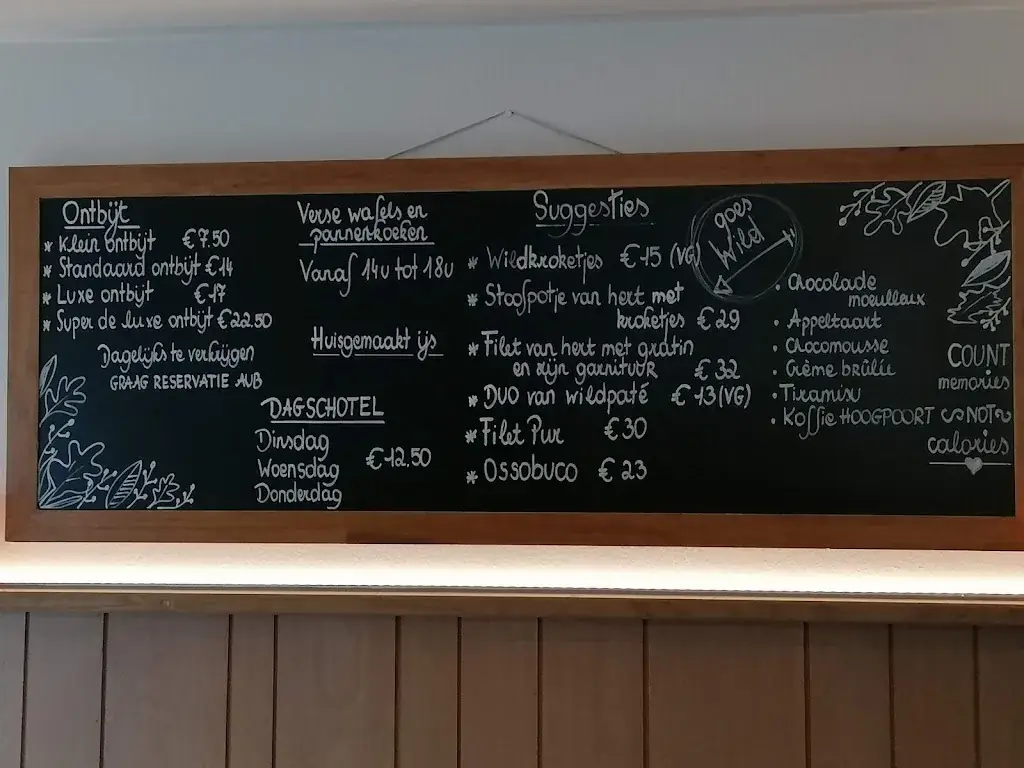 Ontbijt
* Klein ontbijt €7.50
* Standaard ontbijt €14
* Luxe ontbijt €17
* Super de luxe ontbijt €22.50
Dagelijks te verkrijgen
GRAAG RESERVATIE AUB
Verse wafels en
pannenkoeken
Vanaf 14u tot 18u
Huisgemaakt ijs
DAGSCHOTEL
Dinsdag
Woensdag €12,50
Donderdag
Suggesties
* Wildkroketjes €15 (VG)
* Stoofpotje van hert met
kroketjes €29
* Filet van hert met gratin
en zijn garnituur €32
* DUO van wildpaté €13 (VG)
* Filet Pur €30
* Ossobuco €23
goes
Wild
• Chocolade
moeulleux
• Appeltaart
• Chocomousse
• Crème brûlée
• Tiramisu
• Koffie HOOGPOORT
COUNT
memories
NOT
calories